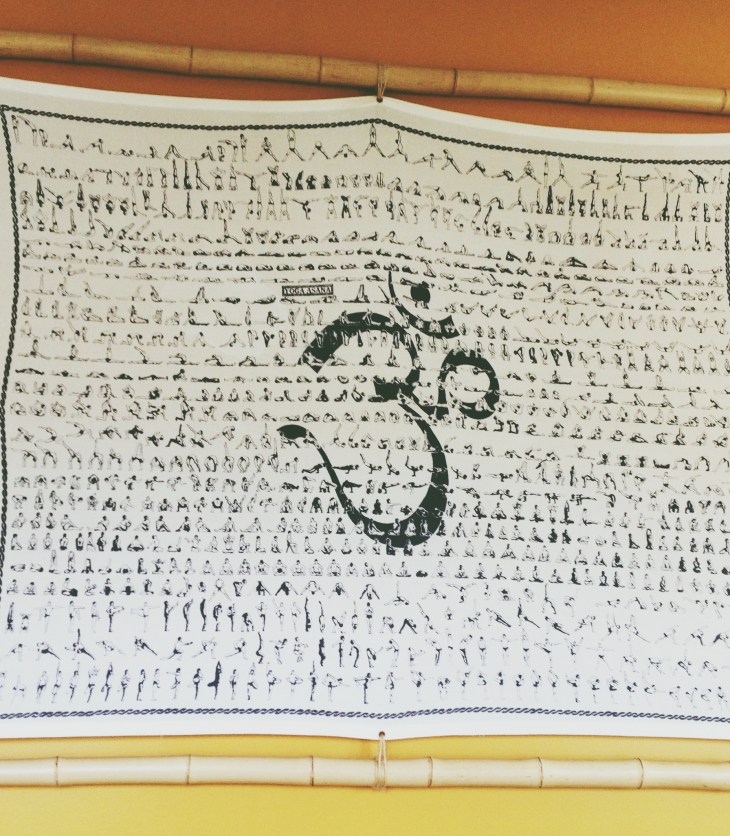 YOGA ASANA
ॐ